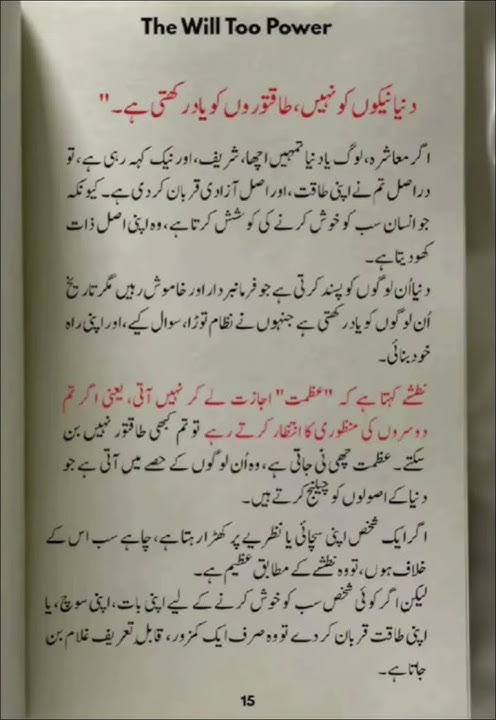 The Will Too Power
دنیا نیکوں کو نہیں، طاقتوروں کو یاد رکھتی ہے۔"
اگر معاشرہ، لوگ یا دنیا تمہیں اچھا، شریف، اور نیک کہہ رہی ہے، تو
دراصل تم نے اپنی طاقت، اور اصل آزادی قربان کر دی ہے۔ کیونکہ
جو انسان سب کو خوش کرنے کی کوشش کرتا ہے، وہ اپنی اصل ذات
کھو دیتا ہے۔
دنیا اُن لوگوں کو پسند کرتی ہے جو فرمانبردار اور خاموش رہیں مگر تاریخ
اُن لوگوں کو یاد رکھتی ہے جنہوں نے نظام توڑا، سوال کیے، اور اپنی راہ
خود بنائی۔
نطشے کہتا ہے کہ "عظمت" اجازت لے کر نہیں آتی، یعنی اگر تم
دوسروں کی منظوری کا انتظار کرتے رہے تو تم کبھی طاقتور نہیں بن
سکتے۔ عظمت چھی نی جاتی ہے، وہ اُن لوگوں کے حصے میں آتی ہے جو
دنیا کے اصولوں کو چیلنج کرتے ہیں۔
اگر ایک شخص اپنی سچائی یا نظریے پر کھڑا رہتا ہے، چاہے سب اس کے
خلاف ہوں، تو وہ نطشے کے مطابق عظیم ہے۔
لیکن اگر کوئی شخص سب کو خوش کرنے کے لیے اپنی بات، اپنی سوچ، یا
اپنی طاقت قربان کر دے تو وہ صرف ایک کمزور، قابلِ تعریف غلام بن
جاتا ہے۔
15